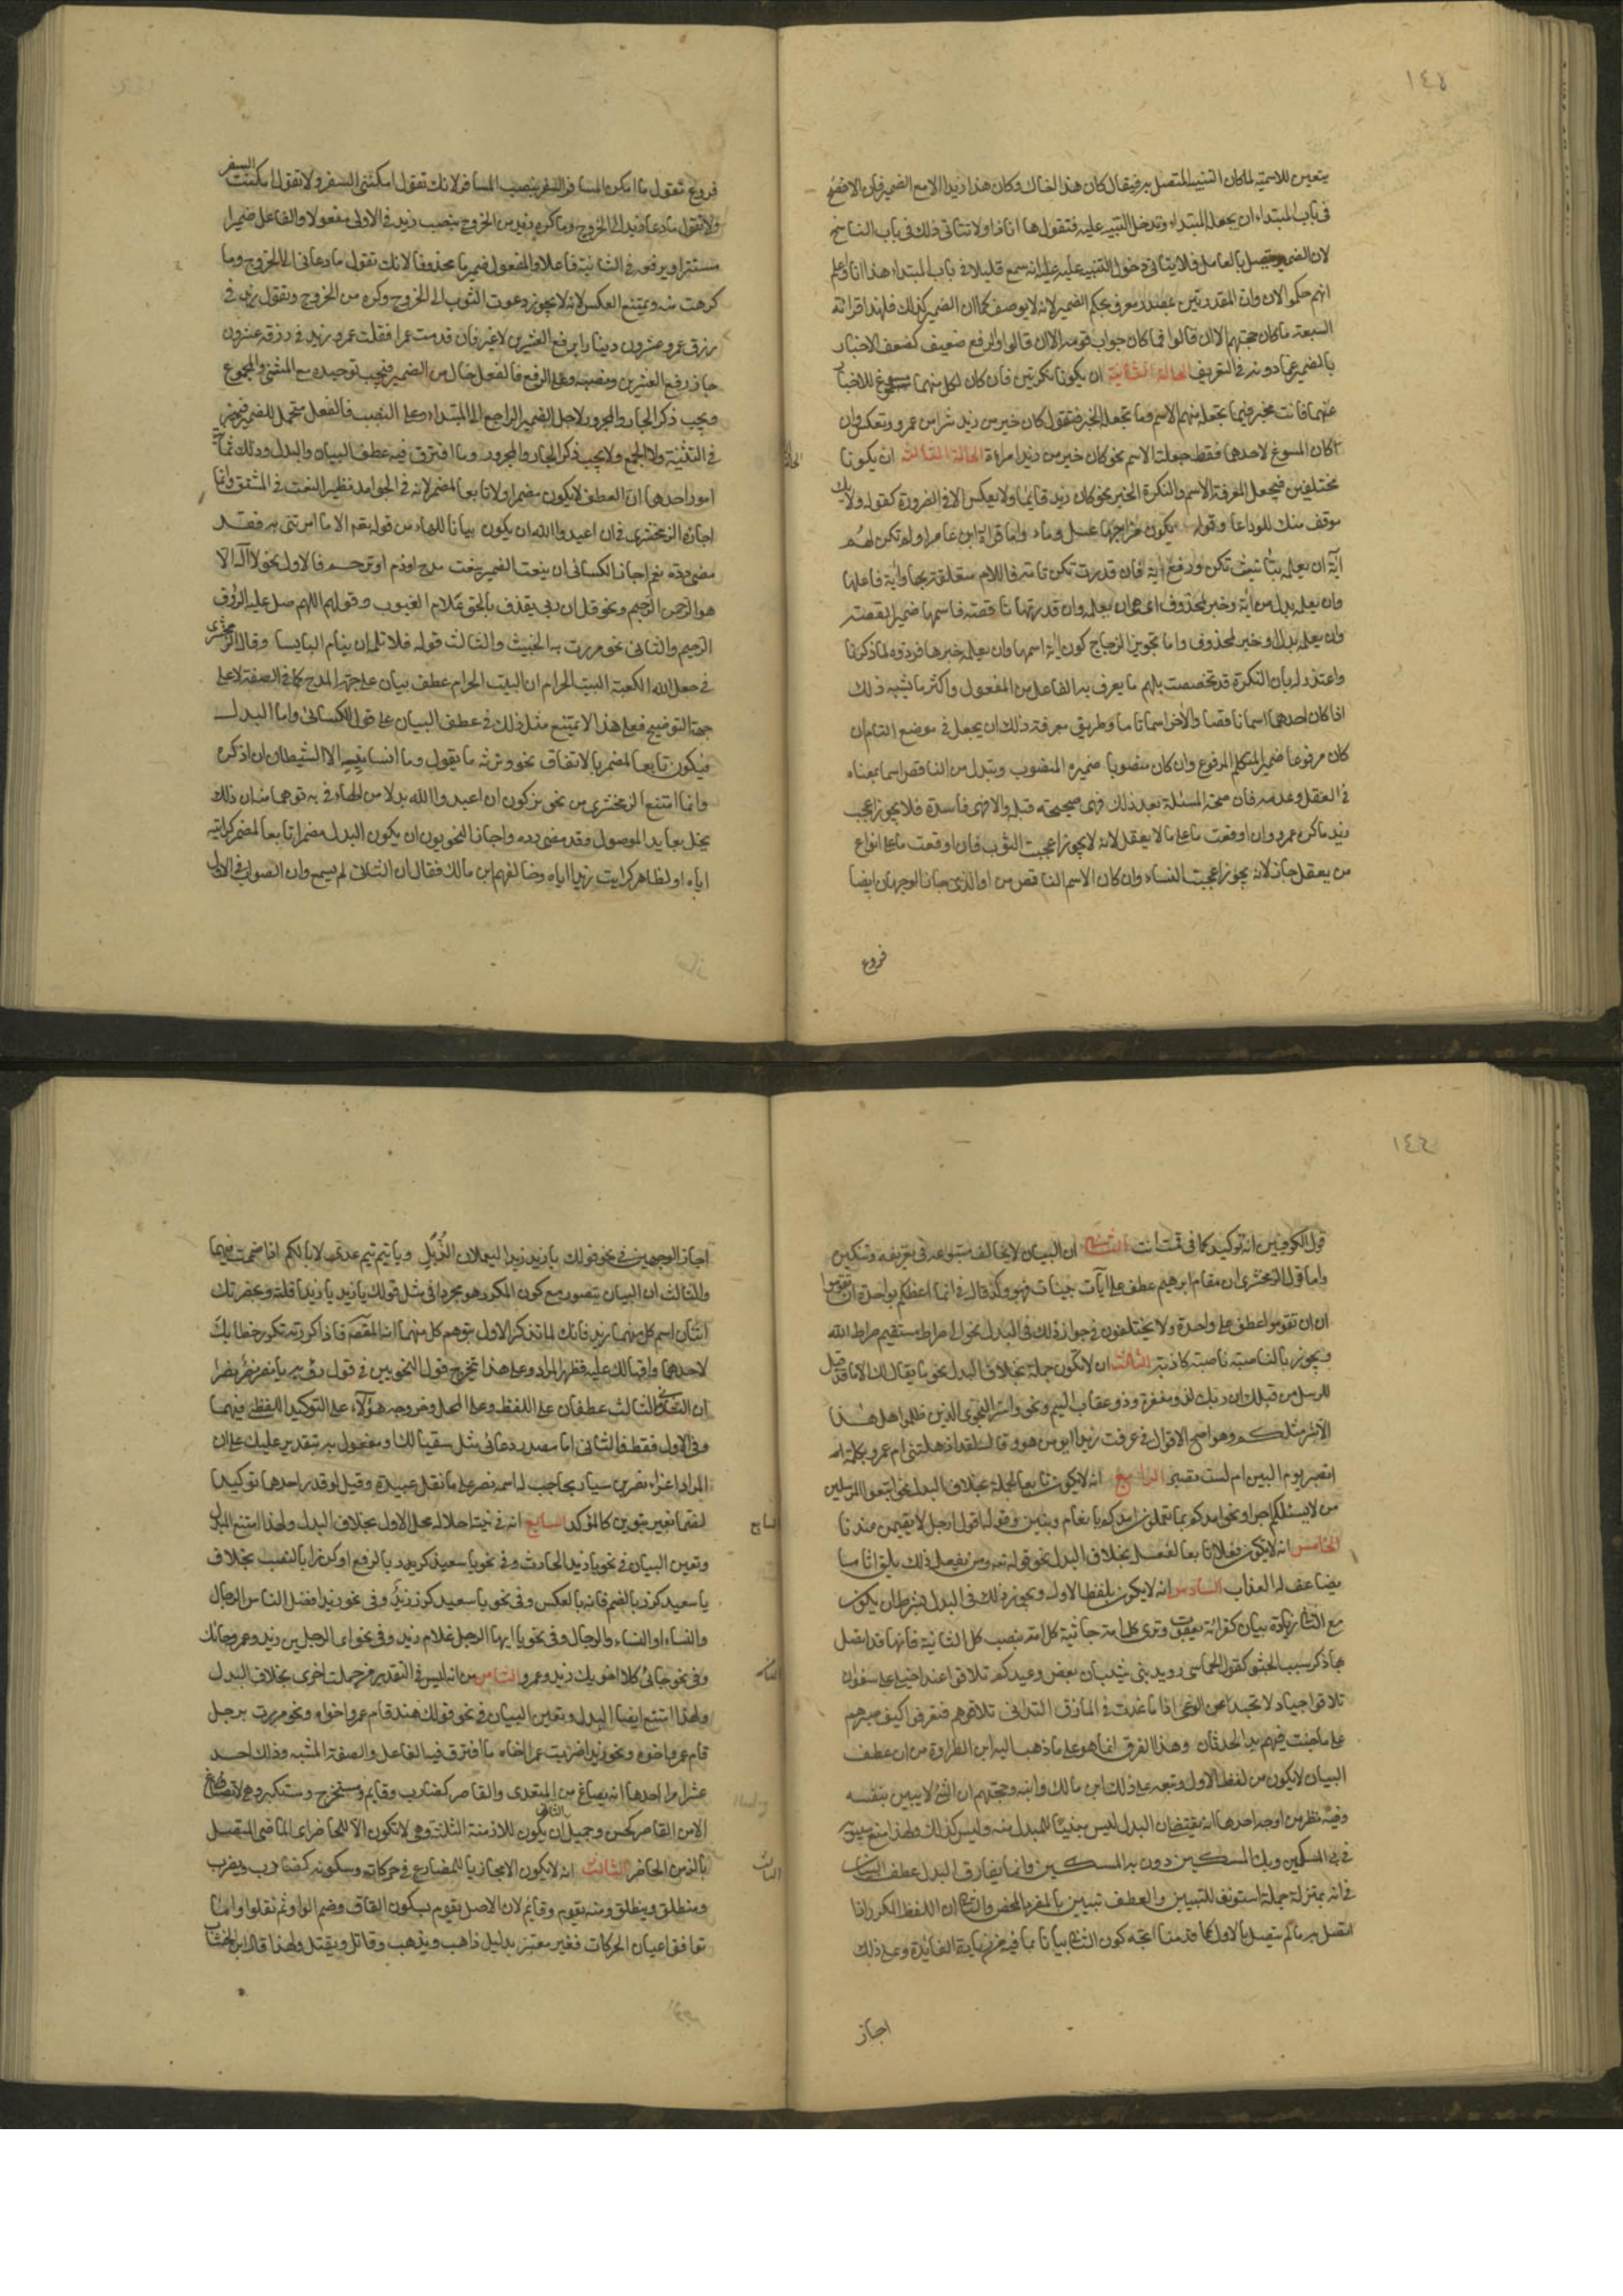 ١٤٨
يتعين للاسمية لمكان التنبيه المتصل به فيقال كان هذا اخاك وكان هذا زيدا الا مع الضمير فان الافصح
في باب المبتداء ان يجعل المبتداء وتدخل التنبيه عليه فتقول ها انا ذا ولا يتاتى ذلك في باب الناسخ
لان الضمير متصل بالعامل فلا يتاتى دخول التنبيه عليه على انه سمع قليلا في باب المبتداء هذا انا واعلم
انهم حكموا لان وان المقدرتين بمصدر معرف بحكم الضمير لانه لا يوصف كما ان الضمير كذلك فلهذا قرات
السبعة ما كان حجتهم الا ان قالوا فما كان جواب قومه الا ان قالوا والرفع ضعيف كضعف الاخبار
بالضمير عما دونه في التعريف الحالة الثانية ان يكونا نكرتين فان كان لكل منهما مسوغ للاخبار
عنهما فانت مخير فيما تجعله منهما الاسم وما تجعله الخبر فتقول كان خير من زيد شرا من عمرو وتعكس وان
كان المسوغ لاحدهما فقط جعلته الاسم نحو كان خير من زيد امراة الحالة الثالثة ان يكونا
مختلفين فيجعل المعرفة الاسم والنكرة الخبر نحو كان زيد قايما ولا يعكس الا في الضرورة كقوله ولا يك
موقف منك الوداعا وقوله يكون مزاجها عسل وماء واما قراءة ابن عامر اولم تكن لهم
آية ان يعلمه بتانيث تكن ورفع آية فان قدرت تكن تامة فاللام متعلقة بها وآية فاعلها
وان يعلمه بدل من آية وخبر لمحذوف اي هي ان يعلمه وان قدرتها ناقصة فاسمها ضمير القصة
وان يعلمه بدل او خبر لمحذوف واما تجويز الزجاج كون آية اسمها وان يعلمه خبرها فردوه لما ذكرنا
واعتذر له بان النكرة قد تخصصت بلهم ما يعرف به الفاعل من المفعول واكثر ما يشبه ذلك
اذا كان احدهما اسما ناقصا والآخر اسما تاما وطريق معرفة ذلك ان يجعل في موضع التام ان
كان مرفوعا ضمير المتكلم المرفوع وان كان منصوبا ضميره المنصوب ويتبدل من الناقص اسما بمعناه
في العقل وعدمه فان صحت المسئلة بعد ذلك فهي صحيحة قبله والا فهي فاسدة فلا يجوز اعجب
زيد ما كره عمرو وان اوقعت ما على ما لا يعقل لانه لا يجوز اعجبت الثوب فان اوقعت ما على انواع
من يعقل جاز لانه يجوز اعجبت النساء وان كان الاسم الناقص من او الذي جاز الوجهان ايضا
فروع
فروع تقول ما امكن المسافر السفر بنصب المسافر لانك تقول امكنني السفر ولا تقول امكنت السفر
ولا تقول ما دعا زيدا الى الخروج وما كره زيد من الخروج بنصب زيد في الاولى مفعولا والفاعل ضميرا
مستترا ويرفعه في الثانية فاعلا والمفعول ضميرا محذوفا لانك تقول ما دعاني الى الخروج وما
كرهت منه ويمتنع العكس لانه لا يجوز دعوت الثوب الى الخروج وكره من الخروج وتقول زيد في
رزق عمرو عشرون دينارا برفع العشرين لا غير فان قدمت عمرا فقلت عمرو زيد في رزقه عشرون
جاز رفع العشرين ونصبه وعلى الرفع فالفعل خال من الضمير فيجب توحيده مع المثنى والمجموع
ويجب ذكر الجار والمجرور لاجل الضمير الراجع الى المبتداء وعلى النصب فالفعل متحمل للضمير فيبرز
في التثنية والجمع ولا يجب ذكر الجار والمجرور وما افترق فيه عطف البيان والبدل وذلك ثمانية
امور احدها ان العطف لا يكون مضمرا ولا تابعا لمضمر لانه في الجوامد نظير النعت في المشتق واما
اجازة الزمخشري في ان اعبدوا الله ان يكون بيانا للهاء من قوله تعم الا ما امرتني به فقد
مضى رده نعم اجاز الكسائي ان ينعت الضمير بنعت مدح او ذم او ترحم فالاول نحو لا اله الا
هو الرحمن الرحيم ونحو قل ان ربي يقذف بالحق علام الغيوب وقولهم اللهم صل عليه الرؤف
الرحيم والثاني نحو مررت به الخبيث والثالث قوله فلا تلمه ان ينام البايسا وقال الزمخشري
في جعل الله الكعبة البيت الحرام ان البيت الحرام عطف بيان على جهة المدح كما في الصفة لا على
جهة التوضيح فعلى هذا لا يمتنع مثل ذلك في عطف البيان على قول الكسائي واما البدل
فيكون تابعا للمضمر بالاتفاق نحو ونرثه ما يقول وما انسانيه الا الشيطان ان اذكره
وانما امتنع الزمخشري من نحو بزكون ان اعبدوا الله بدلا من الهاء في به توهما منه ان ذلك
يخل بعايد الموصول وقد مضى رده واجاز النحويون ان يكون البدل مضمرا تابعا لمضمر كرايته
اياه او لظاهر كرايت زيدا اياه وخالفهم ابن مالك فقال ان الثاني لم يسمع وان الصواب في الاول
١٤٩
قول الكوفيين انه توكيد كما في قمت انت الثاني ان البيان لا يخالف متبوعه في تعريفه وتنكيره
واما قول الزمخشري ان مقام ابرهيم عطف على آيات بينات فسهو وكذا قال في انما اعظكم بواحدة ان تقوموا
ان ان تقوموا عطف على واحدة ولا يختلفون في جواز ذلك في البدل نحو الى صراط مستقيم صراط الله
ويجوز بالناصية ناصية كاذبة الثالث ان لا تكون جملة بخلاف البدل نحو ما يقال لك الا ما قد قيل
للرسل من قبلك ان ربك لذو مغفرة وذو عقاب اليم ونحو واسروا النجوى الذين ظلموا هل هذا
الا بشر مثلكم وهو اصح الاقوال في عرفت زيدا ابو من هو وقال لقد اذهلتني ام عمرو بكلمة
اتصبر يوم البين ام لست تصبر الرابع انه لا يكون تابعا لجملة بخلاف البدل نحو اتبعوا المرسلين
من لا يسئلكم اجرا ونحو امدكم بما تعلمون امدكم بانعام وبنين وقوله اقول له ارحل لا تقيمن عندنا
الخامس انه لا يكون فعلا تابعا لفعل بخلاف البدل نحو قوله تعه ومن يفعل ذلك يلق اثاما
يضاعف له العذاب السادس انه لا يكون بلفظ الاول ويجوز ذلك في البدل بشرط ان يكون
مع الثاني زيادة بيان كقراءة يعقوب وترى كل امة جاثية كل امة بنصب كل الثانية فانها قد اتصل
بها ذكر سبب الجثو كقول الحماسي رويد بني شيبان بعض وعيدكم تلاقوا غدا خيلي على سفوان
تلاقوا جيادا لا تحيد عن الوغى اذا ما غدت في المازق المتداني تلاقوهم فتعرفوا كيف صبرهم
على ما جنت فيهم يد الحدثان وهذا الفرق انما هو على ما ذهب اليه ابن الطراوة من ان عطف
البيان لا يكون من لفظ الاول وتبعه على ذلك ابن مالك وابنه وحجتهم ان الشيء لا يبين بنفسه
وفيه نظر من اوجه احدها انه يقتضي ان البدل ليس مبينا للمبدل منه وليس كذلك ولهذا منع سيبويه
في المسكين وبك المسكين دون به المسكين وانما يفارق البدل عطف البيان
في انه بمنزلة جملة استونف للتبيين والعطف تبيين بالمفرد المحض والثاني ان اللفظ المكرر اذا
اتصل به ما لم يتصل بالاول كما قدمنا اتجه كون الثاني بيانا بما فيه من زيادة الفائدة وعلى ذلك
اجاز
اجازوا الوجهين في نحو قولك يا زيد زيد اليعملات الذبل ويا تيم تيم عدي لا ابا لكم اذا ضممت فيهما
والثالث ان البيان يتصور مع كون المكرر هو مجردا في مثل قولك يا زيد يا زيد اذا قلته وبحضرتك
اثنان اسم كل منهما زيد فانك لما تذكر الاول يتوهم كل منهما انه المقصود فاذا كررته تكرر خطابك
لاحدهما واقبالك عليه فظهر المراد وعلى هذا تخرج قول النحويين في قول رؤبة يا نصر نصر نصرا
ان الثاني والثالث عطفان على اللفظ وعلى المحل وخرجه هؤلاء على التوكيد اللفظي فيهما
وفي الاول فقط فالثاني اما مصدر دعائي مثل سقيا لك او مفعول به بتقدير عليك على ان
المراد اغراء نصر بن سيار بحاجب له اسمه نصر على ما نقل عبيدة وقيل لو قدر احدهما توكيدا
لضما بغير تنوين كالمؤكد السابع انه في نية احلاله محل الاول بخلاف البدل ولهذا امتنع البدل
وتعين البيان في نحو يا زيد الحارث وفي نحو يا سعيد كرز بالرفع او كرزا بالنصب بخلاف
يا سعيد كرز بالضم فانه بالعكس وفي نحو يا سعيد كرز زيد وفي نحو زيد افضل الناس الرجال
والنساء او النساء والرجال وفي نحو يا ايها الرجل غلام زيد وفي نحو اي الرجلين زيد وعمرو جاءك
وفي نحو جاءني كلا اخويك زيد وعمرو الثامن انه ليس في التقدير من جملة اخرى بخلاف البدل
ولهذا امتنع ايضا البدل وتعين البيان في نحو قولك هند قام عمرو اخوها ونحو مررت برجل
قام عمرو اخوه ونحو زيد اضربت عمرا اخاه ما افترق فيه الفاعل والصفة المشبه وذلك احد
عشر امرا احدها انه يصاغ من المتعدي والقاصر كضارب وقايم ومستخرج ومستكبر وهي لا تصاغ
الا من القاصر كحسن وجميل الثاني ان يكون للازمنة الثلثة وهي لا تكون الا للحاضر اي الماضي المتصل
بالزمن الحاضر الثالث انه لا يكون الا مجاريا للمضارع في حركاته وسكونه كضارب ويضرب
ومنطلق وينطلق ومنه يقوم وقايم لان الاصل يقوم بسكون القاف وضم الواو ثم نقلوا واما
توافق اعيان الحركات فغير معتبر بدليل ذاهب ويذهب وقاتل ويقتل ولهذا قال ابن الخشاب